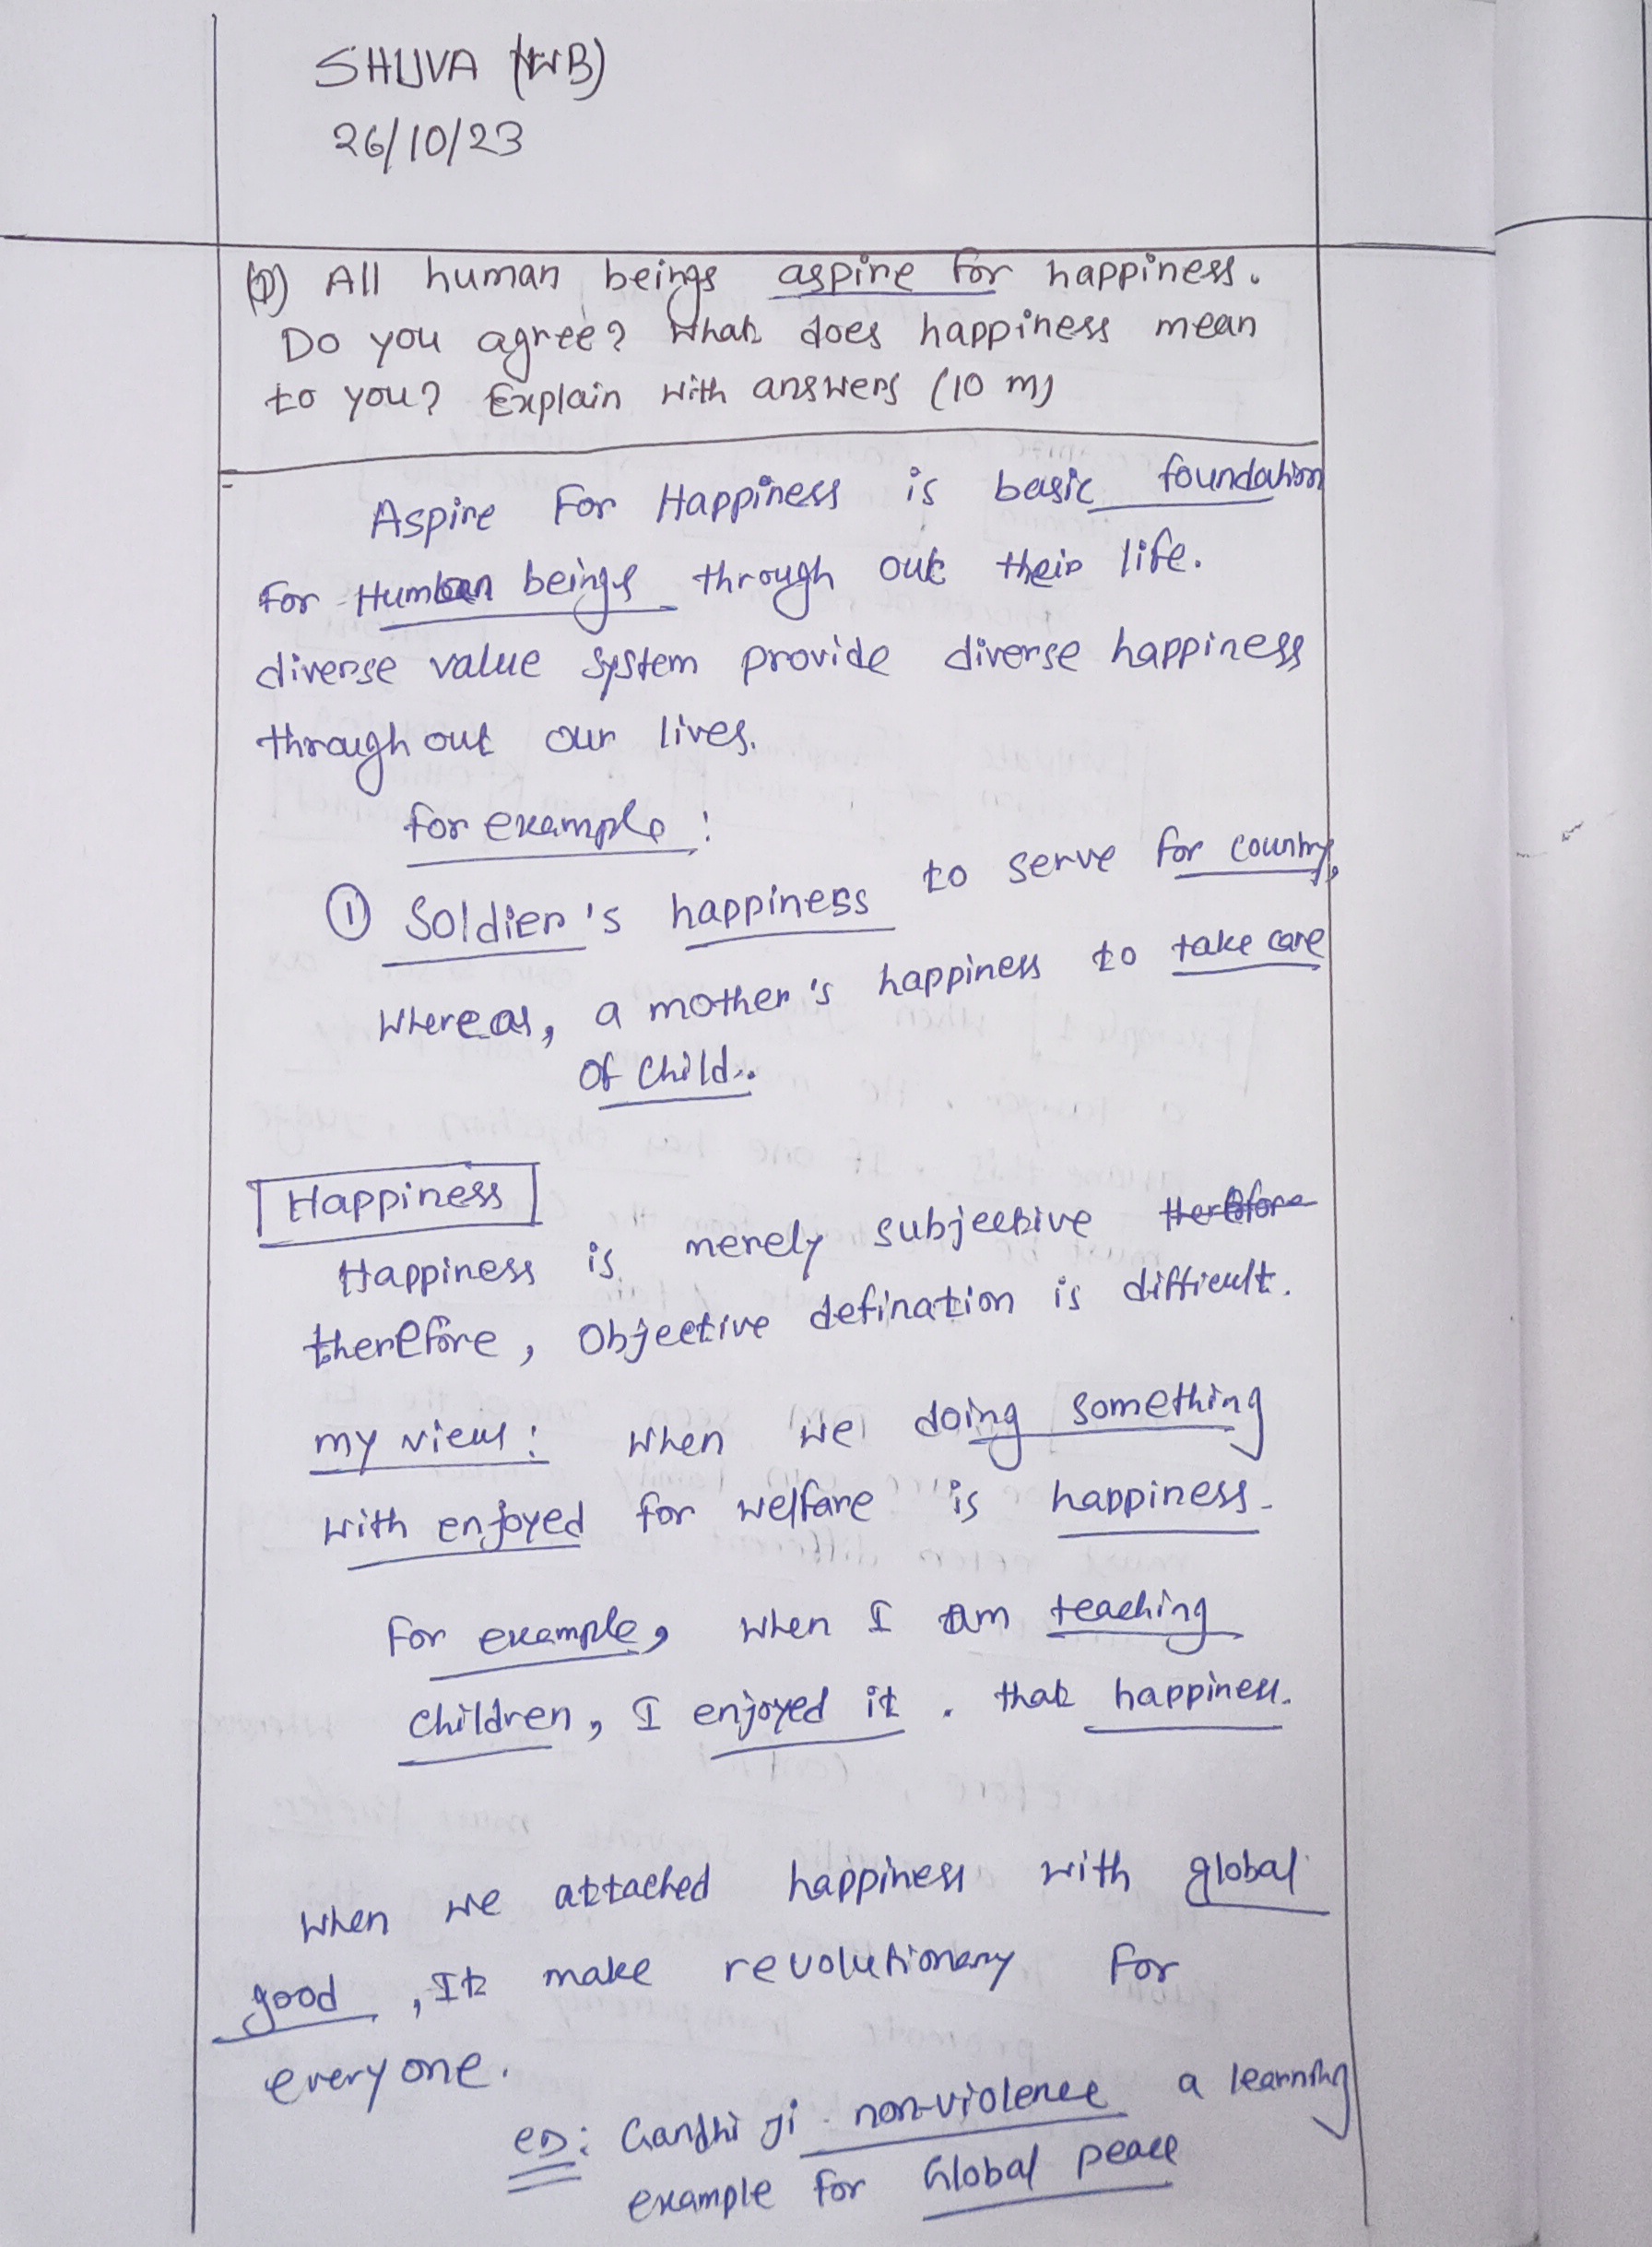 SHUVA (WB)
26/10/23
Q) All human beings aspire for happiness.
Do you agree? What does happiness mean
to you? Explain with answers (10 m)
Aspire For Happiness is basic foundation
for Human beings through out their life.
diverse value system provide diverse happiness
through out our lives.
for example :
① Soldier's happiness to serve for country,
Whereas, a mother's happiness to take care
of child.
Happiness
Happiness is merely subjective therefore
therefore, Objective defination is difficult.
my view : When we doing something
with enjoyed for welfare is happiness.
For example, when I am teaching
children, I enjoyed it. that happiness.
When we attached happiness with global
good, It make revolutionary for
every one.
eg: Gandhi ji non-violence a learning
example for Global peace